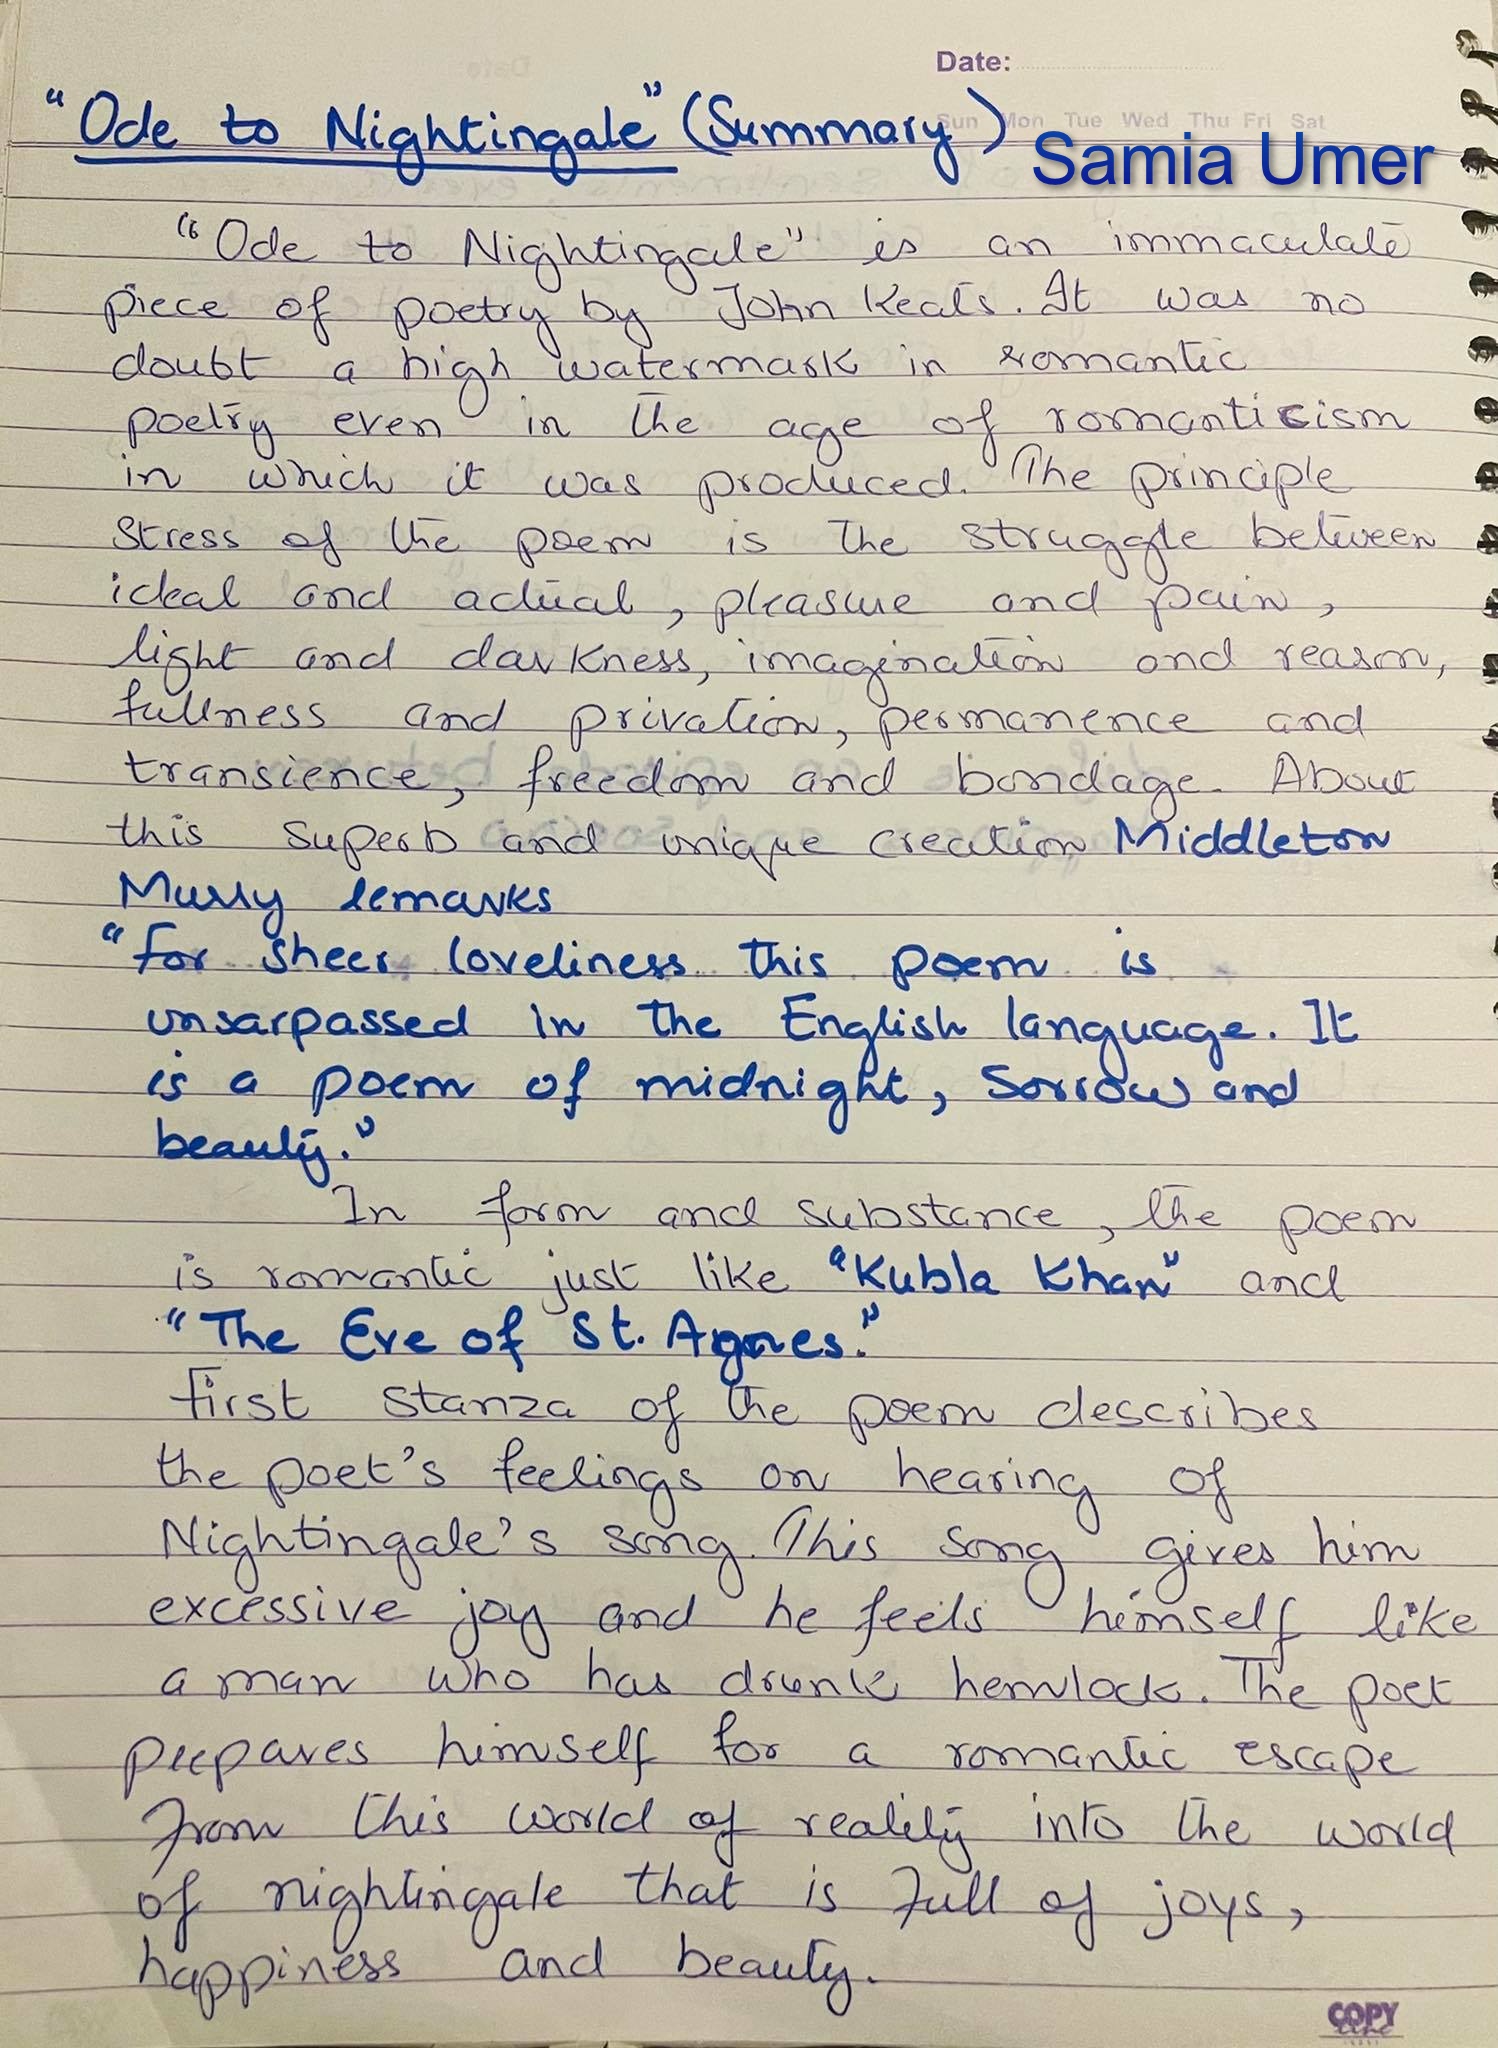 Date:
Sun Mon Tue Wed Thu Fri Sat
"Ode to Nightingale" (Summary)
Samia Umer
"Ode to Nightingale" is an immaculate
piece of poetry by John Keats. It was no
doubt a high watermark in romantic
poetry even in the age of romanticism
in which it was produced. The principle
stress of the poem is the struggle between
ideal and actual, pleasure and pain,
light and darkness, imagination and reason,
fullness and privation, permanence and
transience, freedom and bondage. About
this superb and unique creation Middleton
Murry remarks
"For sheer loveliness this poem is
unsarpassed in the English language. It
is a poem of midnight, Sorrow and
beauty."
In form and substance, the poem
is romantic just like "Kubla Khan" and
"The Eve of St. Agnes."
First stanza of the poem describes
the poet's feelings on hearing of
Nightingale's song. This song gives him
excessive joy and he feels himself like
a man who has drunk hemlock. The poet
prepares himself for a romantic escape
from this world of reality into the world
of nightingale that is full of joys,
happiness and beauty.
COPY